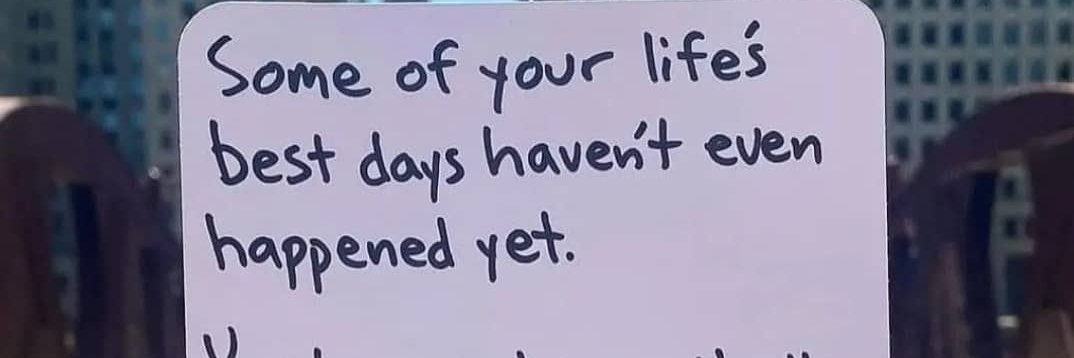 Some of your life's
best days haven't even
happened yet.